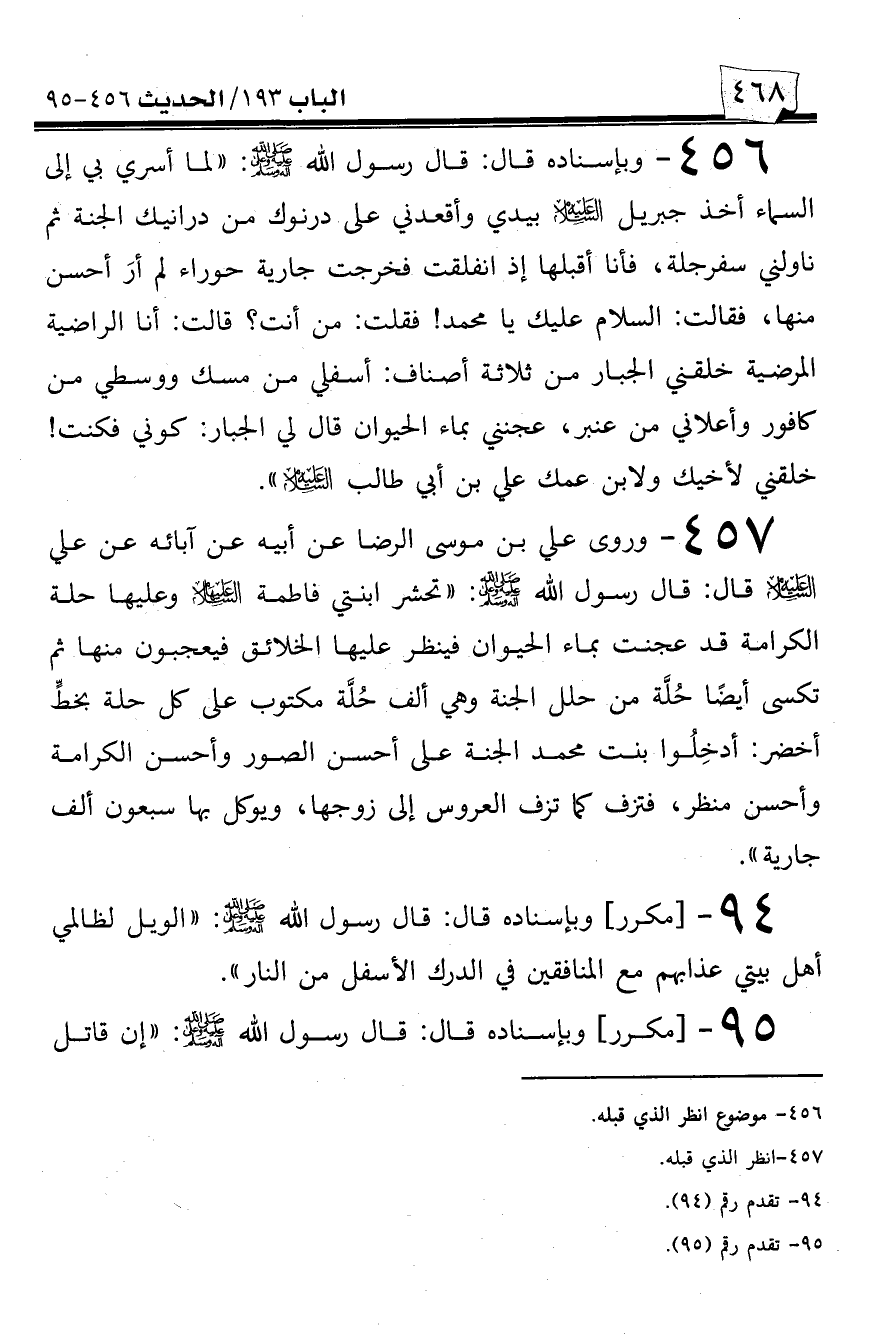 ٤٦٨
الباب ١٩٣/ الحديث ٤٥٦-٩٥
٤٥٦- وبإسناده قال: قال رسول الله ﷺ: «لما أسري بي إلى
السماء أخذ جبريل عليه السلام بيدي وأقعدني على درنوك من درانيك الجنة ثم
ناولني سفرجلة، فأنا أقبلها إذ انفلقت فخرجت جارية حوراء لم أرَ أحسن
منها، فقالت: السلام عليك يا محمد! فقلت: من أنت؟ قالت: أنا الراضية
المرضية خلقني الجبار من ثلاثة أصناف: أسفلي من مسك ووسطي من
كافور وأعلاني من عنبر، عجنني بماء الحيوان قال لي الجبار: كوني فكنت!
خلقني لأخيك ولابن عمك علي بن أبي طالب عليه السلام».
٤٥٧- وروى علي بن موسى الرضا عن أبيه عن آبائه عن علي
عليه السلام قال: قال رسول الله ﷺ: «تحشر ابنتي فاطمة عليها السلام وعليها حلة
الكرامة قد عجنت بماء الحيوان فينظر عليها الخلائق فيعجبون منها ثم
تكسى أيضًا حُلَّة من حلل الجنة وهي ألف حُلَّة مكتوب على كل حلة بخطٍّ
أخضر: أدخِلُوا بنت محمد الجنة على أحسن الصور وأحسن الكرامة
وأحسن منظر، فتزف كما تزف العروس إلى زوجها، ويوكل بها سبعون ألف
جارية».
٩٤- [مكرر] وبإسناده قال: قال رسول الله ﷺ: «الويل لظالمي
أهل بيتي عذابهم مع المنافقين في الدرك الأسفل من النار».
٩٥- [مكرر] وبإسناده قال: قال رسول الله ﷺ: «إن قاتل
٤٥٦- موضوع انظر الذي قبله.
٤٥٧-انظر الذي قبله.
٩٤- تقدم رقم (٩٤).
٩٥- تقدم رقم (٩٥).